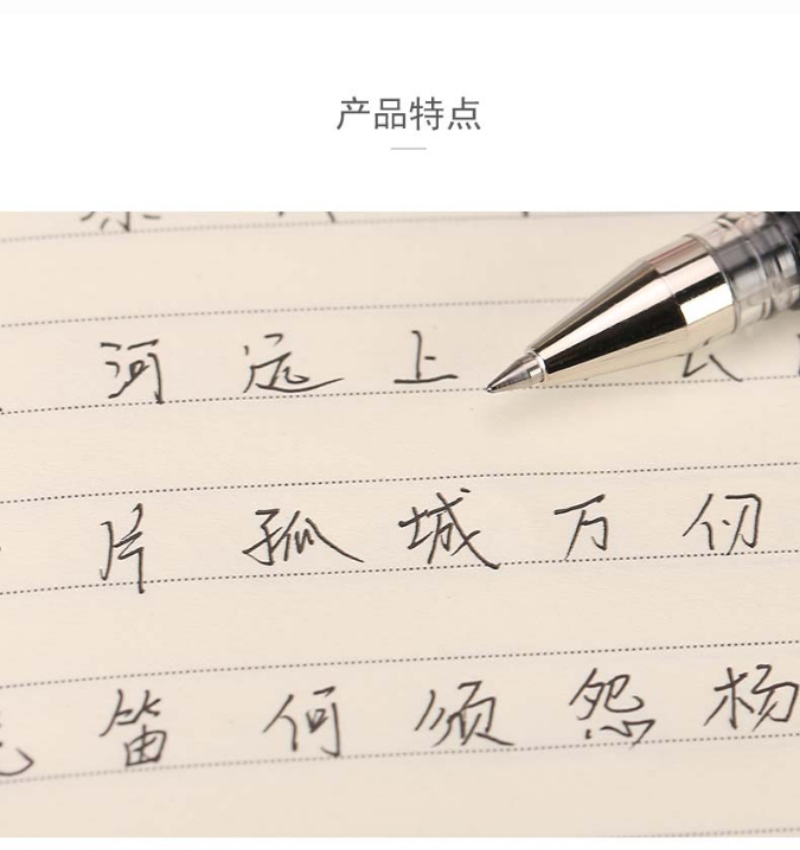 产品特点
河远上
片孤城万仞
笛何须怨杨